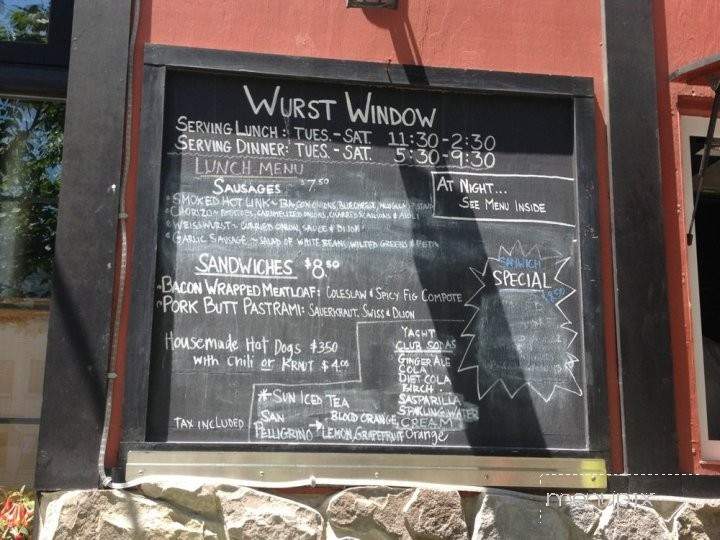 WURST WINDOW
SERVING LUNCH: TUES.-SAT. 11:30-2:30
SERVING DINNER: TUES.-SAT. 5:30-9:30
LUNCH MENU
SAUSAGES $7.50
SMOKED HOT LINK~
CHORIZO~ POTATOES, CARAMELIZED ONIONS, CHARRED SCALLIONS & AIOLI
WEISSWURST~ CURRIED ONION, SAUCE & DIJON
GARLIC SAUSAGE~ SALAD OF WHITE BEANS, WILTED GREENS &
AT NIGHT...
SEE MENU INSIDE
SANDWICHES $8.50
BACON WRAPPED MEATLOAF: COLESLAW & SPICY FIG COMPOTE
PORK BUTT PASTRAMI: SAUERKRAUT, SWISS & DIJON
SPECIAL
HOUSEMADE HOT DOGS $3.50
WITH CHILI or KRAUT $4.00
YACHT
CLUB SODAS
GINGER ALE
COLA
DIET COLA
BIRCH
SASPARILLA
SPARKLING WATER
CREAM
Orange
*SUN ICED TEA
SAN PELLIGRINO → BLOOD ORANGE, LEMON, GRAPEFRUIT
TAX INCLUDED
menupix